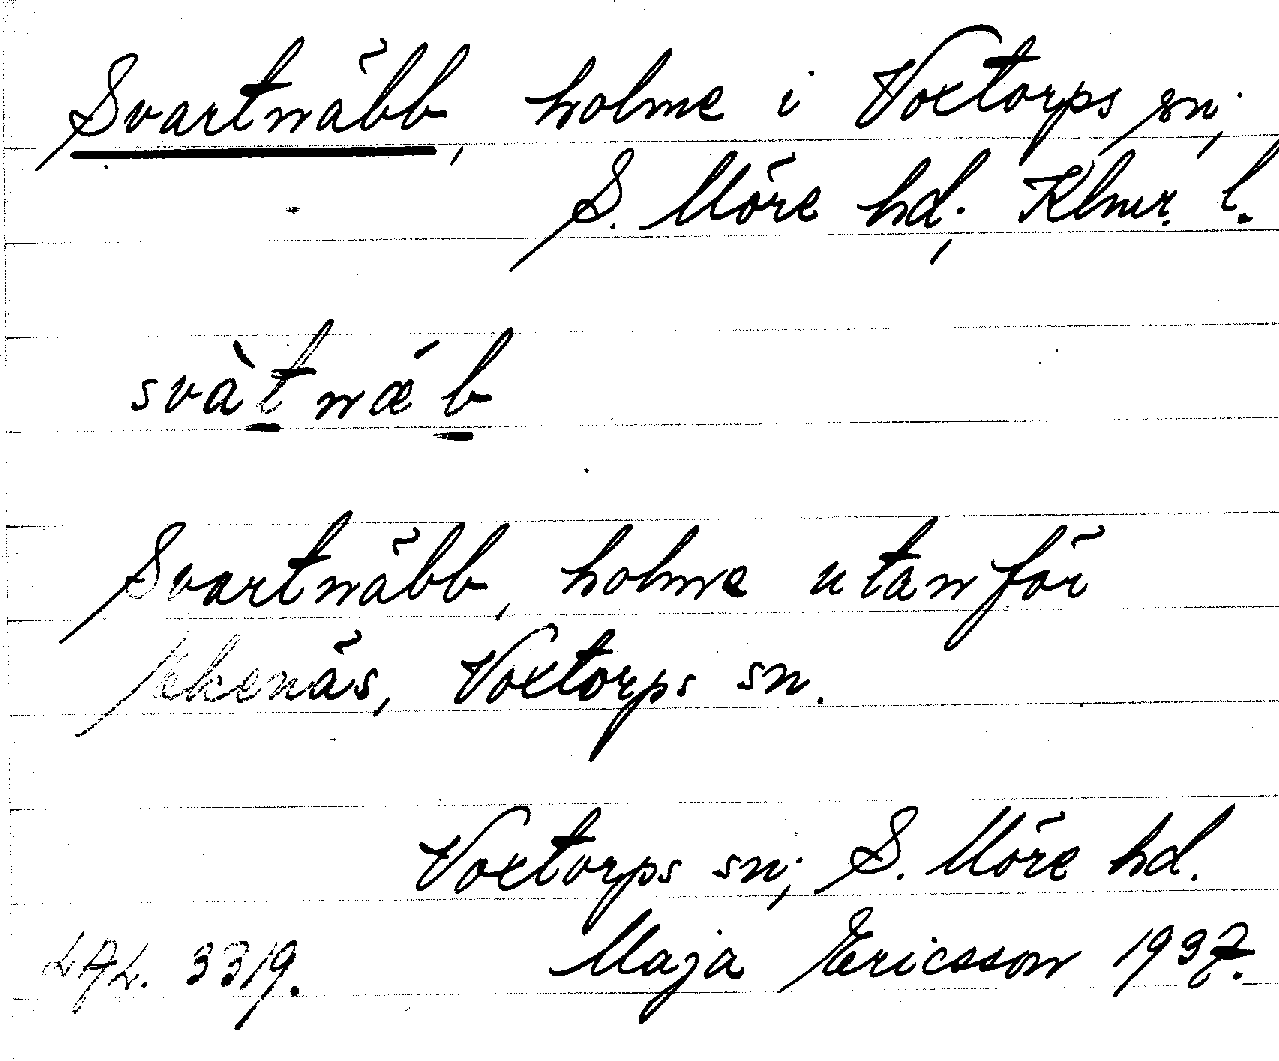 Svartnäbb, holme i Voxtorps sn;
S. Möre hd; Klmr. l.
svàt næ´b
Svartnäbb, holme utanför
Ekenäs, Voxtorps sn.
Voxtorps sn; S. Möre hd.
LAL. 3319. Maja Ericsson 1937.